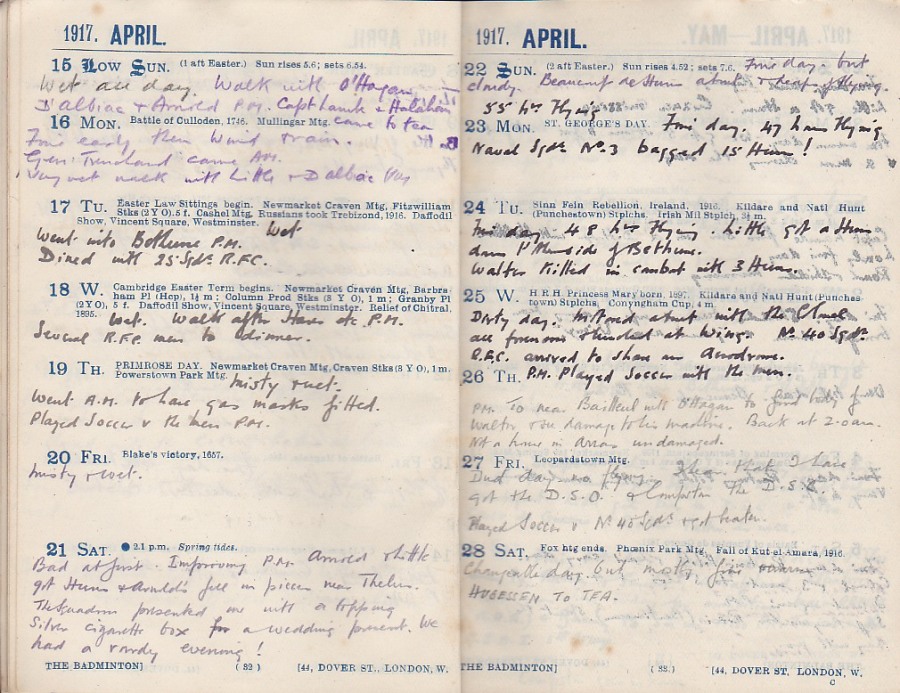 1917. APRIL.
15 Low Sun. (1 aft Easter.) Sun rises 5.6; sets 6.54.
Wet all day. Walk with O'Hagan,
Dalbiac & Arnold P.M. Capt Lamb &
16 MON. Battle of Culloden, 1746. Mullingar Mtg. came to tea
Fine early then Wind & rain.
came A.M.
walk with Little & Dalbiac P.M.
17 TU. Easter Law Sittings begin. Newmarket Craven Mtg, Fitzwilliam
Stks (2 Y O). 5 f. Cashel Mtg. Russians took Trebizond, 1916. Daffodil
Show, Vincent Square, Westminster. Wet
Went into Bethune P.M.
Dined with 25 Sqdn R.F.C.
18 W. Cambridge Easter Term begins. Newmarket Craven Mtg, Barbra
ham Pl (Hcp), 1¼ m; Column Prod Stks (3 Y O), 1 m; Granby Pl
(2 Y O), 5 f. Daffodil Show, Vincent Square, Westminster. Relief of Chitral,
1895. Wet. Walk after P.M.
Several R.F.C. men to dinner.
19 TH. PRIMROSE DAY. Newmarket Craven Mtg, Craven Stks (3 Y O), 1 m.
Powerstown Park Mtg. Misty & wet.
Went A.M. to have gas masks fitted.
Played Soccer v the men P.M.
20 FRI. Blake's victory, 1657.
Misty & wet.
21 SAT. ● 2.1 p.m. Spring tides.
Bad at first. Improving P.M. Arnold & Little
got Huns & Arnold's fell in pieces near Thelus.
The Squadron presented me with a topping
Silver cigarette box for a wedding present. We
had a rowdy evening!
THE BADMINTON] ( 32 ) [44, DOVER ST., LONDON, W.
1917. APRIL.
22 SUN. (2 aft Easter.) Sun rises 4.52; sets 7.6. Fine day. but
cloudy.
55 hrs Flying
23 MON. ST. GEORGE'S DAY. Fine day. 47 hours flying
Naval Sqdn No. 3 bagged 15 Huns!
24 TU. Sinn Fein Rebellion, Ireland, 1916. Kildare and Natl Hunt
(Punchestown) Stplchs. Irish Mil Stplch, 3½ m.
Fine day. 48 hrs Flying. Little got a Hun
down this side of Bethune.
Walter killed in combat with 3 Huns.
25 W. H R H Princess Mary born, 1897. Kildare and Natl Hunt (Punches-
town) Stplchs, Conyngham Cup, 4 m.
Dirty day. Motored about with the Colonel
all forenoon & lunched at Wing. No. 40 Sqdn.
R.F.C. arrived to share our Aerodrome.
26 TH. P.M. Played Soccer with the men.
P.M. To near Bailleul with O'Hagan to find body of
Walter & see damage to his machine. Back at 2.0 a.m.
Not a house in Arras undamaged.
27 FRI. Leopardstown Mtg.
Dud day no flying. I hear that I have
got the D.S.O. & Compston the D.S.C.
Played Soccer v No 40 Sqdn & got beaten.
28 SAT. Fox htg ends. Phœnix Park Mtg. Fall of Kut-el-Amara, 1916.
Changeable day but mostly fine
TO TEA.
THE BADMINTON] ( 33 ) [44, DOVER ST., LONDON, W.
C